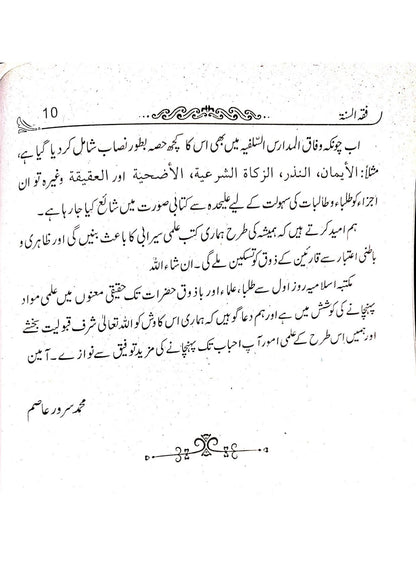 فقہ السنۃ 10
اب چونکہ وفاق المدارس السّلفیہ میں بھی اس کا کچھ حصہ بطور نصاب شامل کر دیا گیا ہے،
مثلاً: الأيمان، النذر، الزكاة الشرعية، الأضحية اور العقيقة وغیرہ تو ان
اجزاء کو طلباء و طالبات کی سہولت کے لیے علیحدہ سے کتابی صورت میں شائع کیا جا رہا ہے۔
ہم امید کرتے ہیں کہ ہمیشہ کی طرح ہماری کتب علمی سیرابی کا باعث بنیں گی اور ظاہری و
باطنی اعتبار سے قارئین کے ذوق کو تسکین ملے گی۔ ان شاء اللہ
مکتبہ اسلامیہ روز اول سے طلباء، علماء اور باذوق حضرات تک حقیقی معنوں میں علمی مواد
پہنچانے کی کوشش میں ہے اور ہم دعا گو ہیں کہ ہماری اس کاوش کو اللہ تعالیٰ شرف قبولیت بخشے
اور ہمیں اس طرح کے علمی امور آپ احباب تک پہنچانے کی مزید توفیق سے نوازے۔ آمین
محمد سرور عاصم